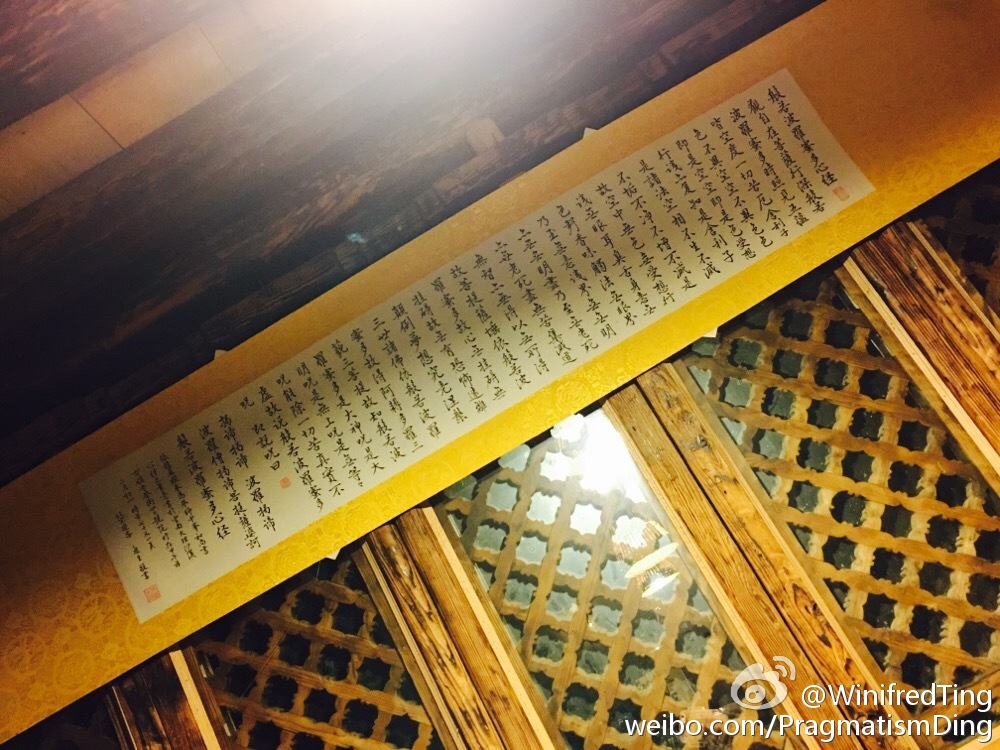 般若波羅蜜多心经
觀自在菩薩行深般若
波羅蜜多時照見五蘊
皆空度一切苦厄舍利子
色不異空空不異色色
即是空空即是色受想
行識亦復如是舍利子
是諸法空相不生不滅
不垢不净不增不減是
故空中无色无受想行
識无眼耳鼻舌身意无
色聲香味觸法无眼界
乃至无意識界无无明
亦无无明盡乃至无老死
亦无老死盡无苦集滅道
無智亦无得以无所得
故菩提薩埵依般若波
羅蜜多故心无罣礙無
罣礙故无有恐怖遠離
顛倒夢想究竟涅槃
三世諸佛依般若波羅
蜜多故得阿耨多羅三
藐三菩提故知般若波
羅蜜多是大神呪是大
明呪是無上呪是無等等
呪能除一切苦真實不
虛故说般若波羅蜜多
呪即說呪曰
揭谛揭谛 波羅揭谛
波羅僧揭谛菩提薩婆訶
般若波羅蜜多心经
@WinifredTing
weibo.com/PragmatismDing